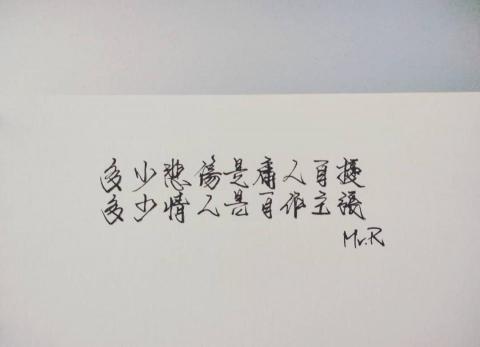 多少悲傷是庸人自擾
多少情人是自作主張
Mr.R